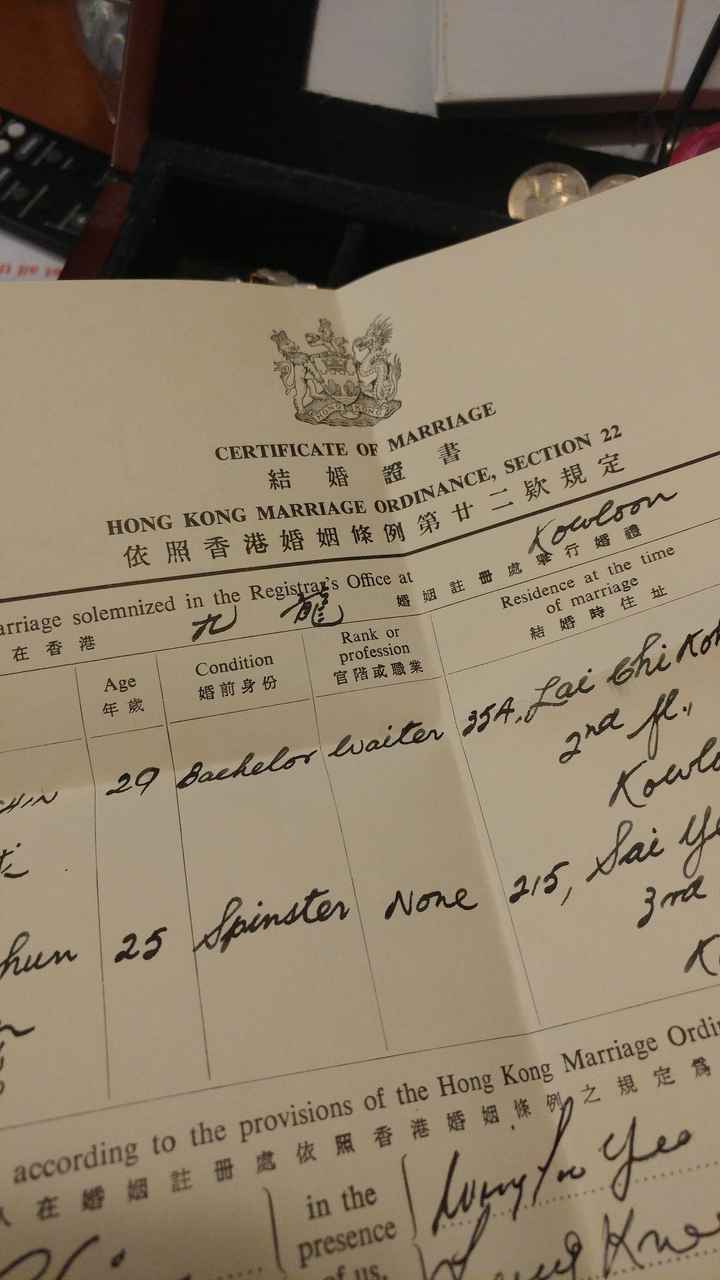 HONG KONG
CERTIFICATE OF MARRIAGE
結婚證書
HONG KONG MARRIAGE ORDINANCE, SECTION 22
依照香港婚姻條例第廿二欵規定
arriage solemnized in the Registrar's Office at Kowloon
在香港 九龍 婚姻註冊處舉行婚禮
Age
年歲
Condition
婚前身份
Rank or
profession
官階或職業
Residence at the time
of marriage
結婚時住址
29 Bachelor Waiter 35A, Lai Chi Kok
2nd fl.,
Kowlo
hun 25 Spinster None 215, Sai Ye
3rd
K
according to the provisions of the Hong Kong Marriage Ordin
人在婚姻註冊處依照香港婚姻條例之規定為
in the
presence
of us,